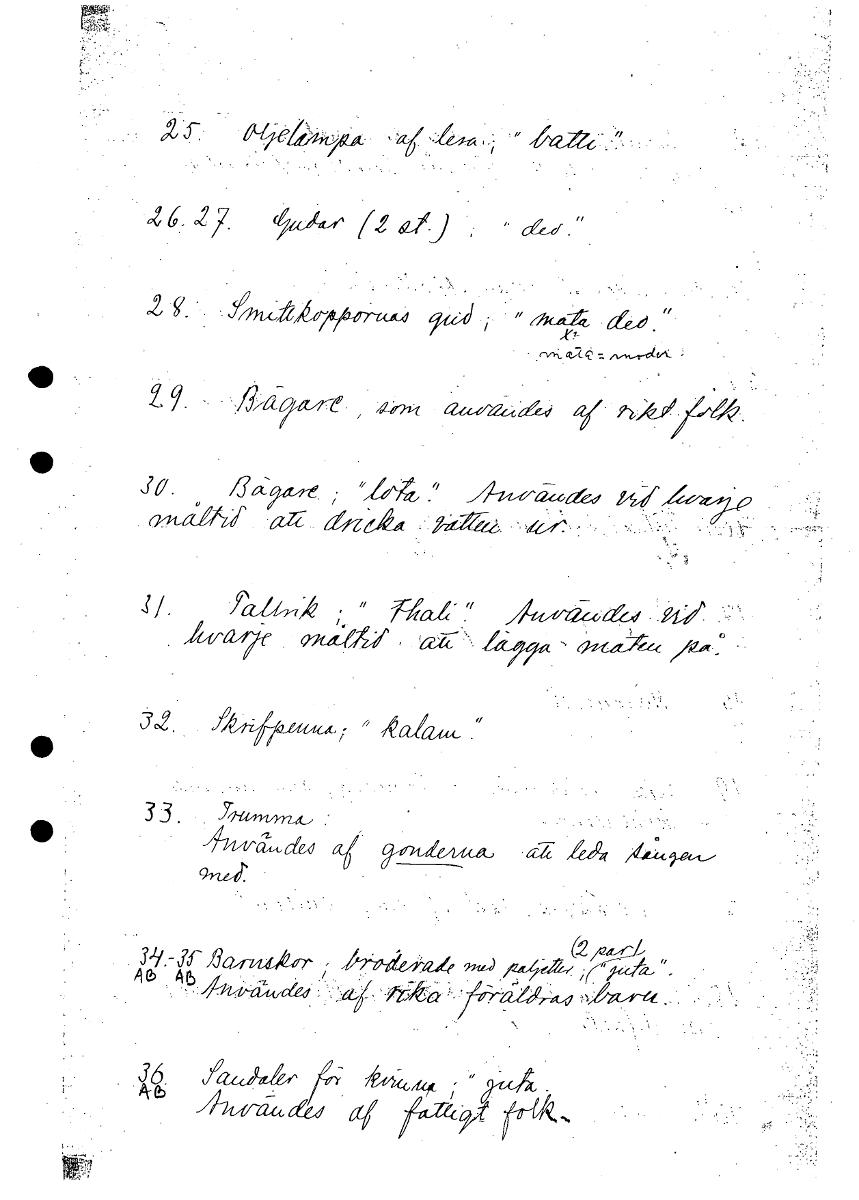 25. Oljelampa af lera; "batti"
26. 27. Gudar (2 st.); "deo."
28. Smittkoppornas gud; "mata deo."
mata = moder
29. Bägare, som användes af rikt folk.
30. Bägare; "lota". Användes vid hvarje
måltid att dricka vatten ur
31. Tallrik; "Thali". Användes vid
hvarje måltid att lägga maten på.
32. Skrifpenna; "kalam".
33. Trumma.
Användes af gonderna att leda sången
med.
(2 par)
34.-35 Barnskor; broderade med paljetter; ("juta".
AB AB Användes af rika föräldras barn.
36 Sandaler för kvinna; "juta.
AB Användes af fattigt folk.